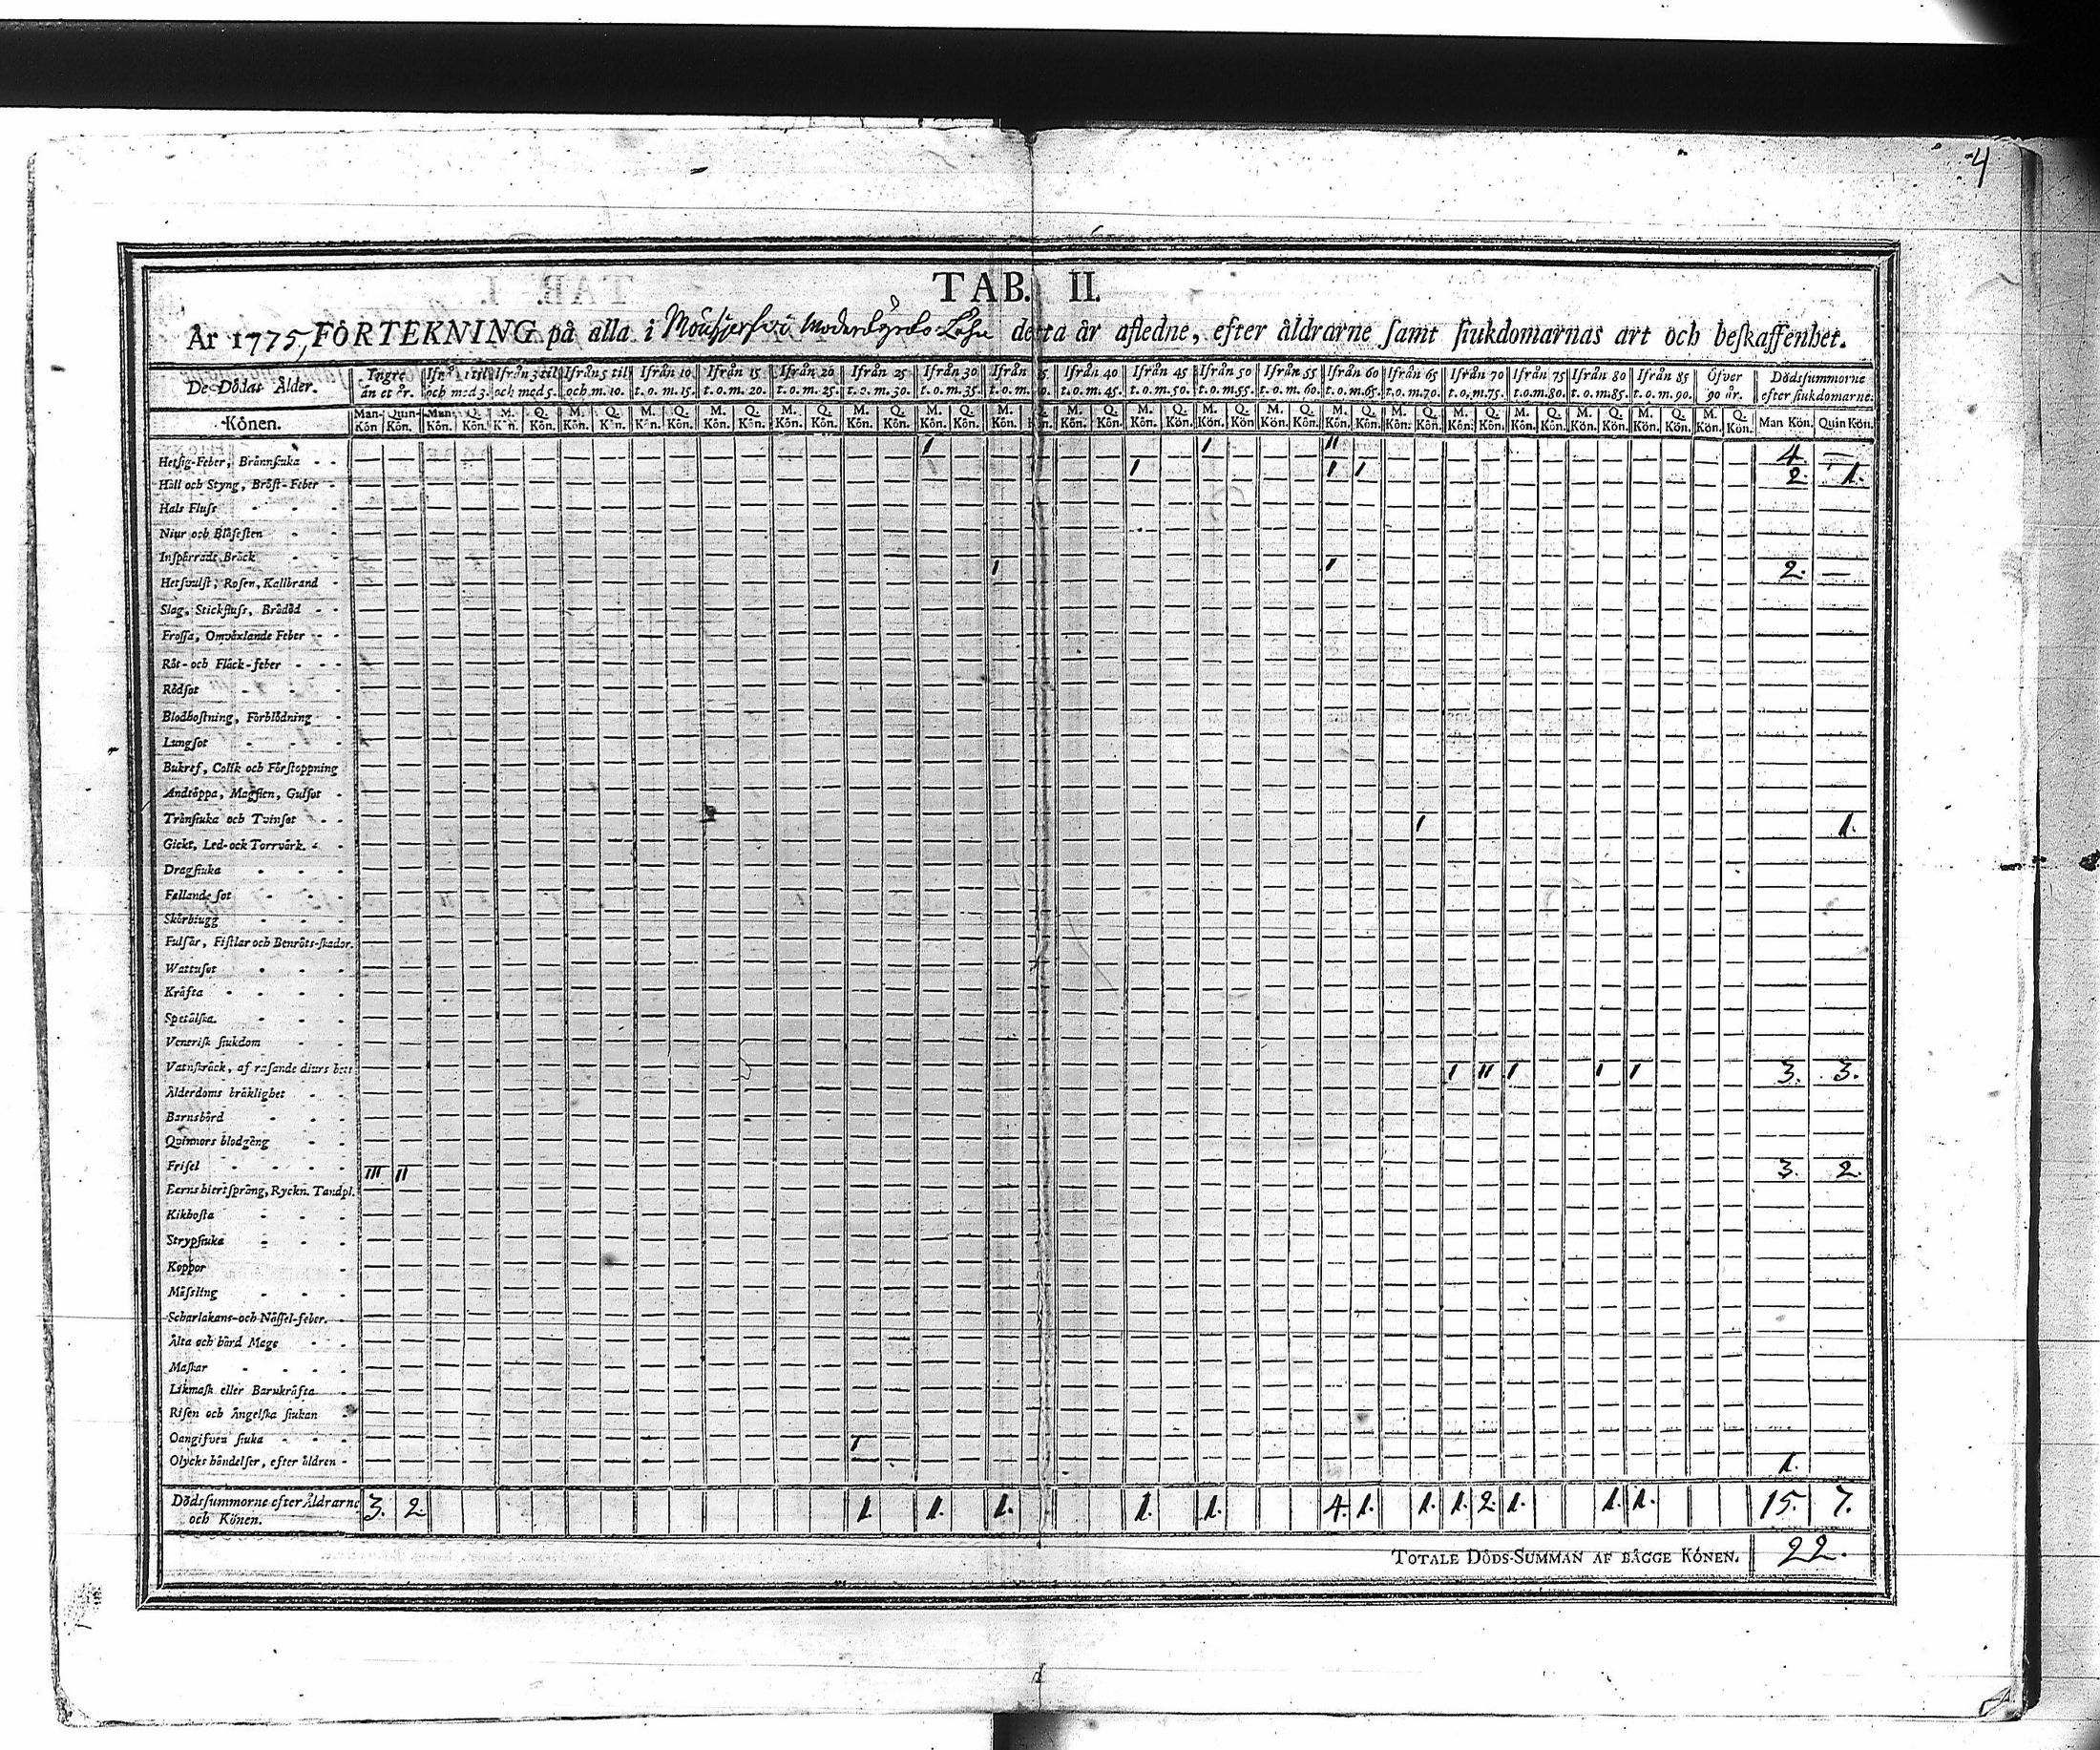 4
TAB. II.
År 1775, FÖRTEKNING på alla i detta år afledne, efter åldrarne samt siukdomarnas art och beskaffenhet.
De Dödas Ålder. Yngre än et år. Ifrån 1 til och med 3. Ifrån 3 til och med 5. Ifrån 5 til och m. 10. Ifrån 10 t. o. m. 15. Ifrån 15 t. o. m. 20. Ifrån 20 t. o. m. 25. Ifrån 25 t. o. m. 30. Ifrån 30 t. o. m. 35. Ifrån t. o. m. Ifrån 40 t. o. m. 45. Ifrån 45 t. o. m. 50. Ifrån 50 t. o. m. 55. Ifrån 55 t. o. m. 60. Ifrån 60 t. o. m. 65. Ifrån 65 t. o. m. 70. Ifrån 70 t. o. m. 75. Ifrån 75 t. o. m. 80. Ifrån 80 t. o. m. 85. Ifrån 85 t. o. m. 90. Öfver 90 år. Dödssummorne efter siukdomarne.
Könen. Man-Kön Quin-Kön. Man-Kön. Q. Kön. M. Kön. Q. Kön. M. Kön. Q. Kön. M. Kön. Q. Kön. M. Kön. Q. Kön. M. Kön. Q. Kön. M. Kön. Q. Kön. M. Kön. Q. Kön. M. Kön. Q. Kön. M. Kön. Q. Kön. M. Kön. Q. Kön. M. Kön. Q. Kön. M. Kön. Q. Kön. M. Kön. Q. Kön. M. Kön. Q. Kön. M. Kön. Q. Kön. M. Kön. Q. Kön. M. Kön. Q. Kön. M. Kön. Q. Kön. M. Kön. Q. Kön. Man Kön. Quin Kön.
Hetsig-Feber, Brännsiuka - - I I II 4 —
Håll och Styng, Bröst-Feber - I I I 2. 1.
Hals Fluss - - -
Niur och Blåsesten - -
Inspärrade Bräck - -
Hetsvulst, Rosen, Kallbrand - I I 2. —
Slag, Stickfluss, Brådöd - -
Frossa, Omväxlande Feber - -
Röt- och Fläck-feber - - -
Rödsot - - -
Blodhostning, Förblödning -
Lungsot - - -
Bukref, Colik och Förstoppning
Andtäppa, Magsten, Gulsot -
Trånsiuka och Tvinsot - - I 1.
Gickt, Led- ock Torrvärk. - -
Dragsiuka - - -
Fallande sot - - -
Skörbiugg - - -
Fulsår, Fistlar och Benröts-skador.
Wattusot - - -
Kräfta - - - -
Spetälska. - - -
Venerisk siukdom - -
Vatnskräck, af rasande diurs bett I II I I I 3. 3.
Ålderdoms bräklighet - -
Barnsbörd - - -
Qvinnors blodgång - -
Frisel - - - - III II 3. 2.
Barns hiertsprång, Ryckn. Tandpl.
Kikhosta - - -
Strypsiuka - - -
Koppor -
Mässling - - -
Scharlakans- och Nässel-feber. -
Älta och hård Mage - -
Maskar - - - -
Likmask eller Barnkräfta -
Risen och Ängelska siukan -
Oangifven siuka - - - I
Olycks händelser, efter åldren - 1.
Dödssummorne efter Åldrarne och Könen. 3. 2. 1. 1. 1. 1. 1. 4. 1. 1. 1. 2. 1. 1. 1. 15. 7.
TOTALE DÖDS-SUMMAN AF BÅGGE KÖNEN. 22.